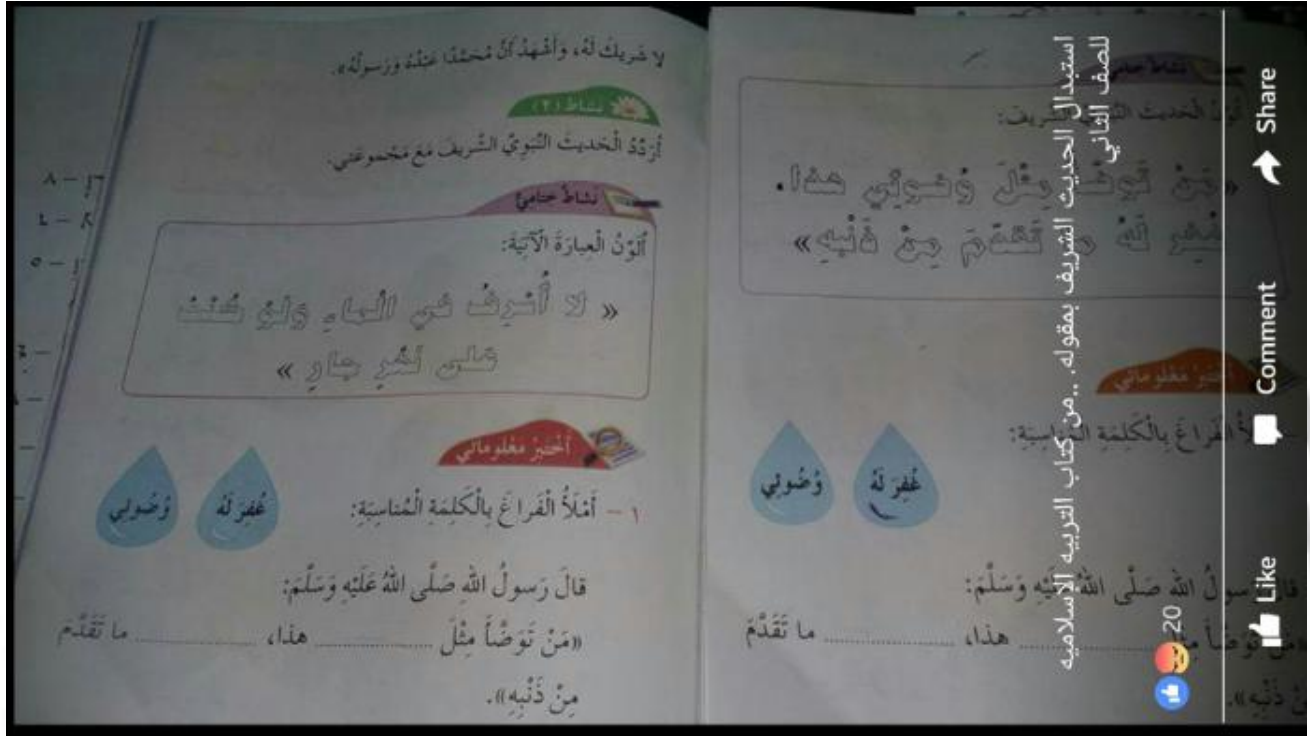 لا شَريكَ لَهُ، وَأَشْهَدُ أَنَّ مُحَمَّدًا عَبْدُهُ وَرَسولُهُ».
نشاط (٢)
أُرَدِّدُ الْحَديثَ النَّبَوِيَّ الشَّريفَ مَعَ مَجْموعَتي.
نَشاطٌ خِتامِيٌّ
أُلَوِّنُ الْعِبارَةَ الْآتِيَةَ:
« لا أُسْرِفُ في الماءِ وَلَوْ كُنْتُ
عَلى نَهْرٍ جارٍ »
أَخْتَبِرُ مَعْلوماتي
١ - أَمْلَأُ الْفَراغَ بِالْكَلِمَةِ الْمُناسِبَةِ:
غُفِرَ لَهُ
وُضوئي
قالَ رَسولُ اللهِ صَلَّى اللهُ عَلَيْهِ وَسَلَّمَ:
«مَنْ تَوَضَّأَ مِثْلَ .................. هذا، .................. ما تَقَدَّمَ
مِنْ ذَنْبِهِ».
نشاط ختامي
أُلَوِّنُ الْحَديثَ النَّبَوِيَّ الشَّريفَ:
«مَنْ تَوَضَّأَ مِثْلَ وُضوئي هذا،
غُفِرَ لَهُ ما تَقَدَّمَ مِنْ ذَنْبِهِ»
أَخْتَبِرُ مَعْلوماتي
أَمْلَأُ الْفَراغَ بِالْكَلِمَةِ الْمُناسِبَةِ:
غُفِرَ لَهُ
وُضُوئي
قالَ رَسولُ اللهِ صَلَّى اللهُ عَلَيْهِ وَسَلَّمَ:
«مَنْ تَوَضَّأَ مِثْلَ .................. هذا، .................. ما تَقَدَّمَ
مِنْ ذَنْبِهِ».
استبدال الحديث الشريف بمقوله. ..من كتاب التربيه الاسلاميه
للصف الثاني
20
Like
Comment
Share